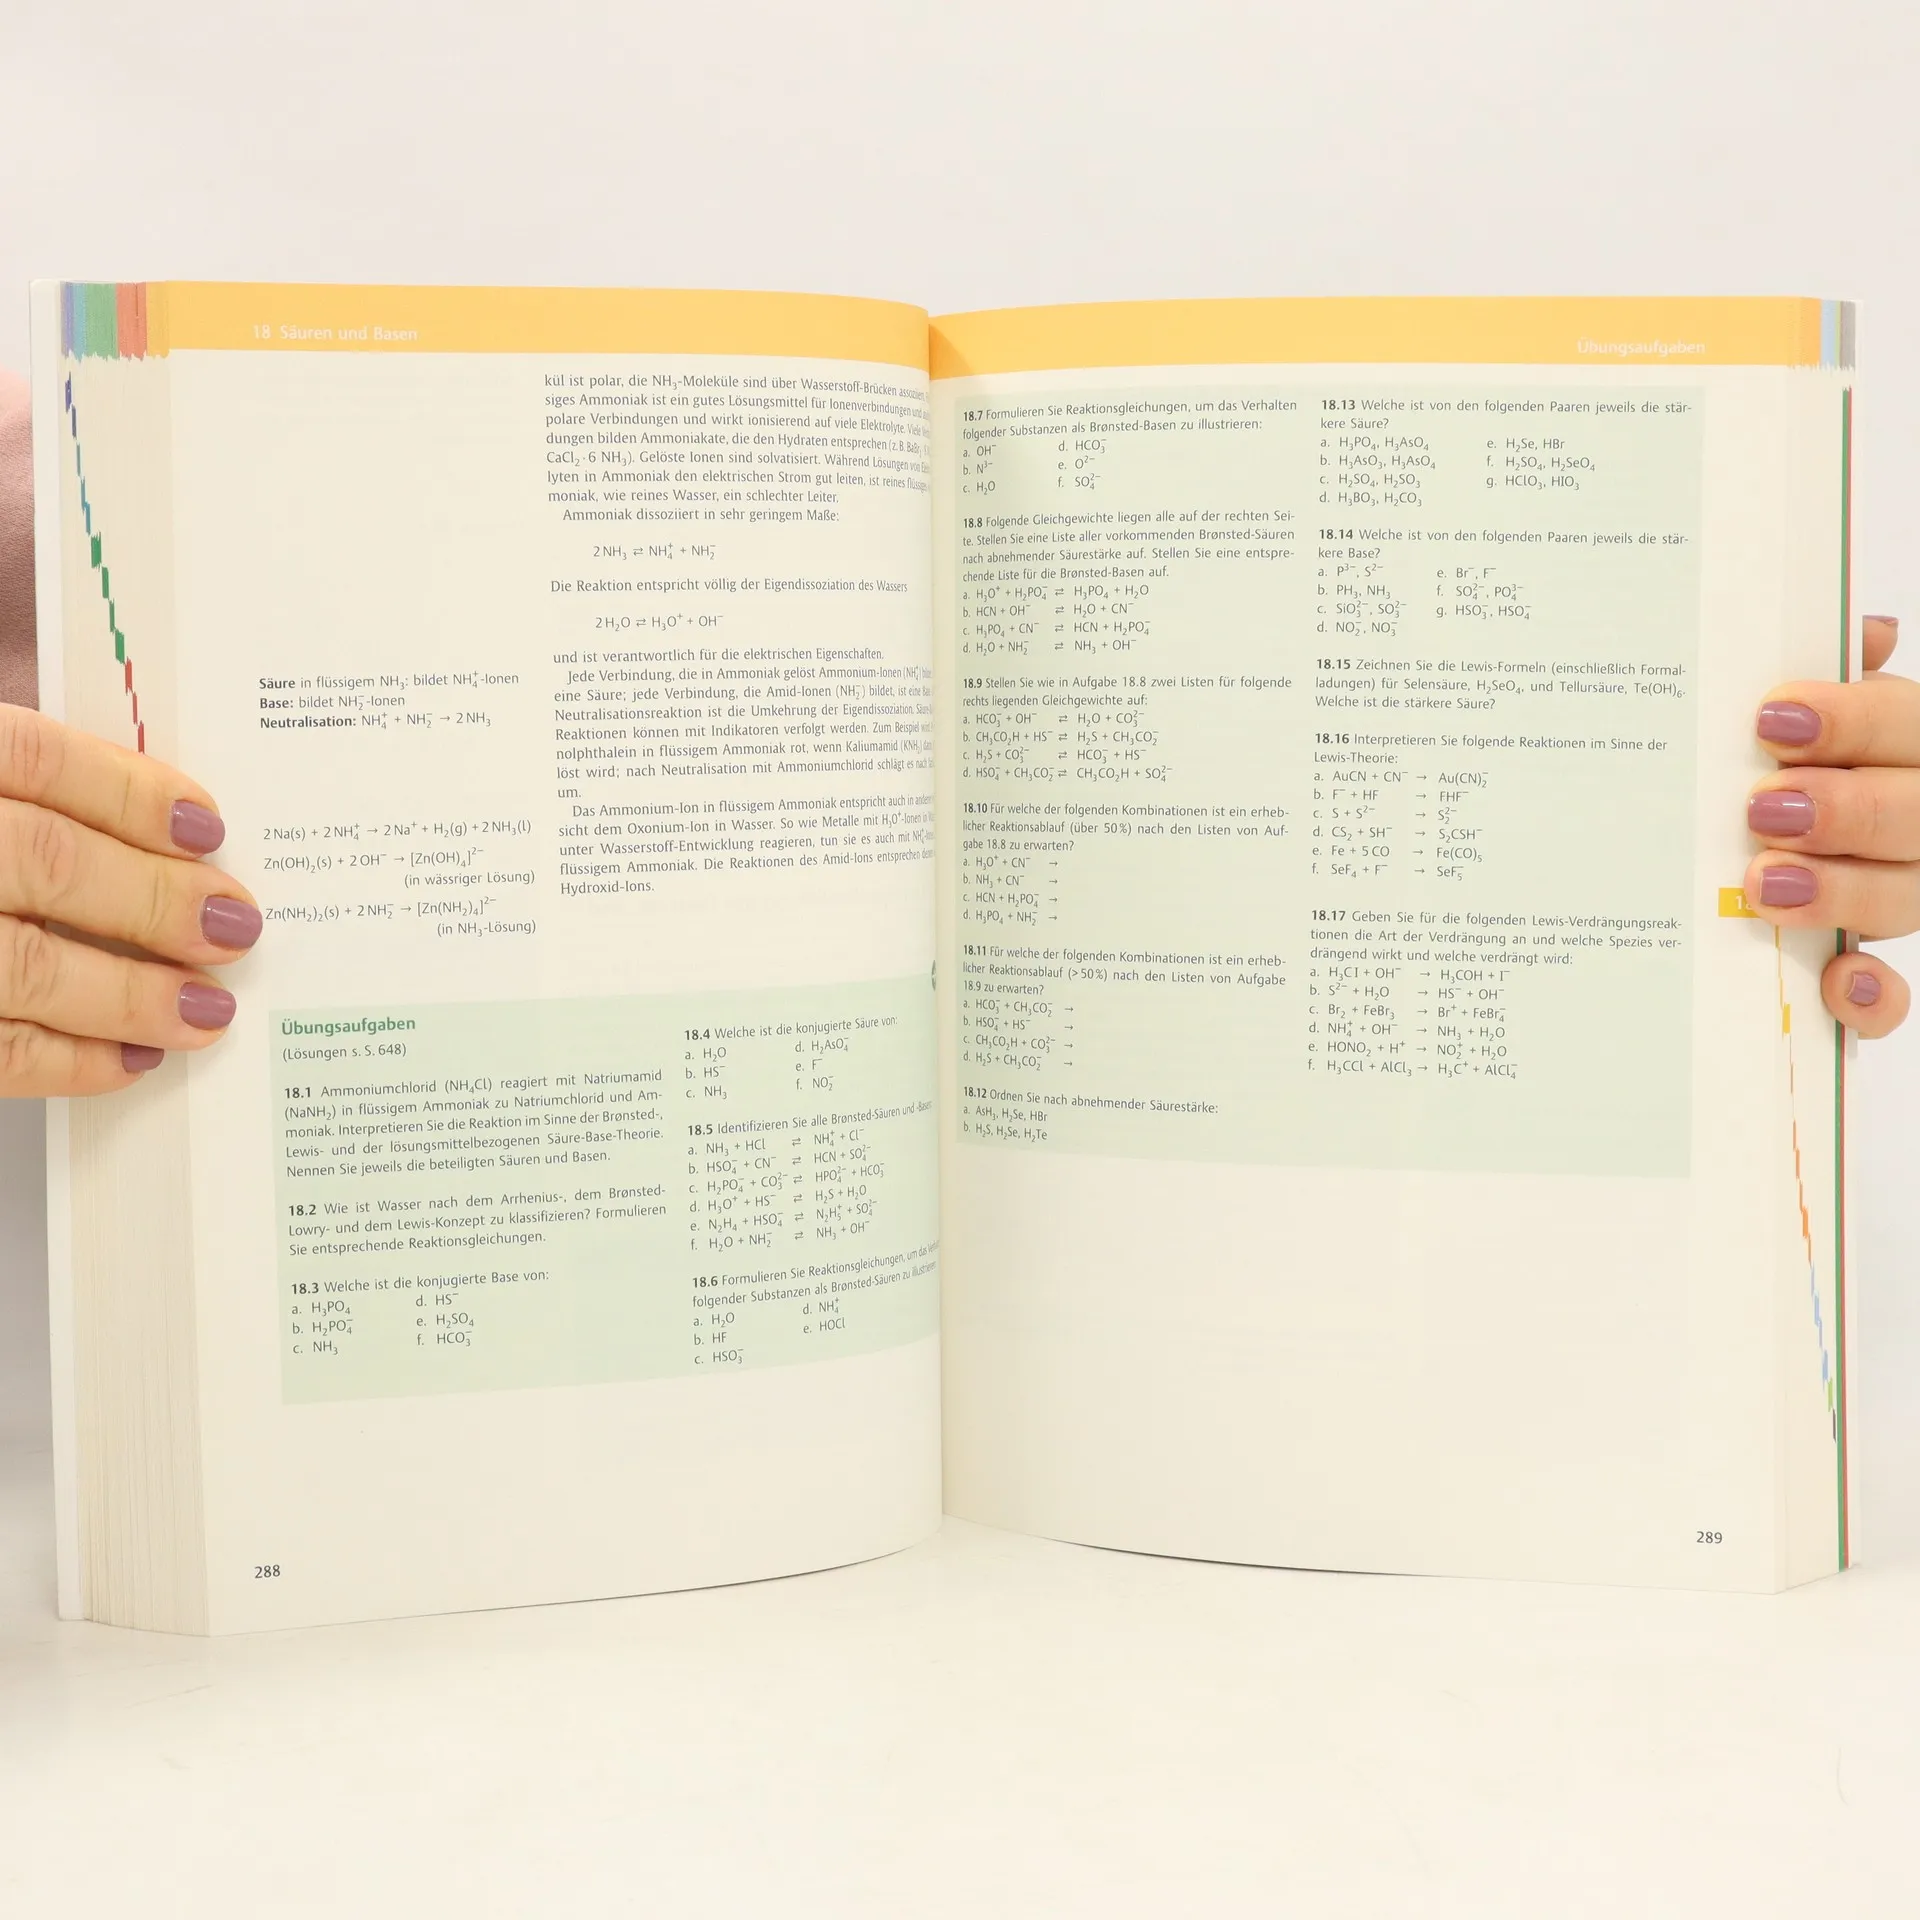 18 Säuren und Basen
kül ist polar, die NH₃-Moleküle sind über Wasserstoff-Brücken assoziiert.
siges Ammoniak ist ein gutes Lösungsmittel für Ionenverbindungen und
polare Verbindungen und wirkt ionisierend auf viele Elektrolyte. Viele
dungen bilden Ammoniakate, die den Hydraten entsprechen (z. B. BaBr₂
CaCl₂ · 6 NH₃). Gelöste Ionen sind solvatisiert. Während Lösungen von
lyten in Ammoniak den elektrischen Strom gut leiten, ist reines flüssiges
moniak, wie reines Wasser, ein schlechter Leiter.
Ammoniak dissoziiert in sehr geringem Maße:
2 NH₃ ⇄ NH₄⁺ + NH₂⁻
Die Reaktion entspricht völlig der Eigendissoziation des Wassers
2 H₂O ⇄ H₃O⁺ + OH⁻
und ist verantwortlich für die elektrischen Eigenschaften.
Jede Verbindung, die in Ammoniak gelöst Ammonium-Ionen (NH₄⁺)
eine Säure; jede Verbindung, die Amid-Ionen (NH₂⁻) bildet, ist eine
Neutralisationsreaktion ist die Umkehrung der Eigendissoziation.
Reaktionen können mit Indikatoren verfolgt werden. Zum Beispiel
nolphthalein in flüssigem Ammoniak rot, wenn Kaliumamid (KNH₂)
löst wird; nach Neutralisation mit Ammoniumchlorid schlägt es nach
um.
Das Ammonium-Ion in flüssigem Ammoniak entspricht auch in
sicht dem Oxonium-Ion in Wasser. So wie Metalle mit H₃O⁺-Ionen in
unter Wasserstoff-Entwicklung reagieren, tun sie es auch mit
flüssigem Ammoniak. Die Reaktionen des Amid-Ions entsprechen
Hydroxid-Ions.
Säure in flüssigem NH₃: bildet NH₄⁺-Ionen
Base: bildet NH₂⁻-Ionen
Neutralisation: NH₄⁺ + NH₂⁻ → 2 NH₃
2 Na(s) + 2 NH₄⁺ → 2 Na⁺ + H₂(g) + 2 NH₃(l)
Zn(OH)₂(s) + 2 OH⁻ → [Zn(OH)₄]²⁻
(in wässriger Lösung)
Zn(NH₂)₂(s) + 2 NH₂⁻ → [Zn(NH₂)₄]²⁻
(in NH₃-Lösung)
Übungsaufgaben
(Lösungen s. S. 648)
18.1 Ammoniumchlorid (NH₄Cl) reagiert mit Natriumamid
(NaNH₂) in flüssigem Ammoniak zu Natriumchlorid und Am-
moniak. Interpretieren Sie die Reaktion im Sinne der Brønsted-,
Lewis- und der lösungsmittelbezogenen Säure-Base-Theorie.
Nennen Sie jeweils die beteiligten Säuren und Basen.
18.2 Wie ist Wasser nach dem Arrhenius-, dem Brønsted-
Lowry- und dem Lewis-Konzept zu klassifizieren? Formulieren
Sie entsprechende Reaktionsgleichungen.
18.3 Welche ist die konjugierte Base von:
a. H₃PO₄ d. HS⁻
b. H₂PO₄⁻ e. H₂SO₄
c. NH₃ f. HCO₃⁻
18.4 Welche ist die konjugierte Säure von:
a. H₂O d. H₂AsO₄⁻
b. HS⁻ e. F⁻
c. NH₃ f. NO₂⁻
18.5 Identifizieren Sie alle Brønsted-Säuren und -Basen
a. NH₃ + HCl ⇄ NH₄⁺ + Cl⁻
b. HSO₄⁻ + CN⁻ ⇄ HCN + SO₄²⁻
c. H₂PO₄⁻ + CO₃²⁻ ⇄ HPO₄²⁻ + HCO₃⁻
d. H₃O⁺ + HS⁻ ⇄ H₂S + H₂O
e. N₂H₄ + HSO₄⁻ ⇄ N₂H₅⁺ + SO₄²⁻
f. H₂O + NH₂⁻ ⇄ NH₃ + OH⁻
18.6 Formulieren Sie Reaktionsgleichungen, um das
folgender Substanzen als Brønsted-Säuren zu illustrieren
a. H₂O d. NH₄⁺
b. HF e. HOCl
c. HSO₃⁻
288
Übungsaufgaben
18.7 Formulieren Sie Reaktionsgleichungen, um das Verhalten
folgender Substanzen als Brønsted-Basen zu illustrieren:
a. OH⁻ d. HCO₃⁻
b. N³⁻ e. O²⁻
c. H₂O f. SO₄²⁻
18.8 Folgende Gleichgewichte liegen alle auf der rechten Sei-
te. Stellen Sie eine Liste aller vorkommenden Brønsted-Säuren
nach abnehmender Säurestärke auf. Stellen Sie eine entspre-
chende Liste für die Brønsted-Basen auf.
a. H₃O⁺ + H₂PO₄⁻ ⇄ H₃PO₄ + H₂O
b. HCN + OH⁻ ⇄ H₂O + CN⁻
c. H₃PO₄ + CN⁻ ⇄ HCN + H₂PO₄⁻
d. H₂O + NH₂⁻ ⇄ NH₃ + OH⁻
18.9 Stellen Sie wie in Aufgabe 18.8 zwei Listen für folgende
rechts liegenden Gleichgewichte auf:
a. HCO₃⁻ + OH⁻ ⇄ H₂O + CO₃²⁻
b. CH₃CO₂H + HS⁻ ⇄ H₂S + CH₃CO₂⁻
c. H₂S + CO₃²⁻ ⇄ HCO₃⁻ + HS⁻
d. HSO₄⁻ + CH₃CO₂⁻ ⇄ CH₃CO₂H + SO₄²⁻
18.10 Für welche der folgenden Kombinationen ist ein erheb-
licher Reaktionsablauf (über 50 %) nach den Listen von Auf-
gabe 18.8 zu erwarten?
a. H₃O⁺ + CN⁻ →
b. NH₃ + CN⁻ →
c. HCN + H₂PO₄⁻ →
d. H₃PO₄ + NH₂⁻ →
18.11 Für welche der folgenden Kombinationen ist ein erheb-
licher Reaktionsablauf (> 50 %) nach den Listen von Aufgabe
18.9 zu erwarten?
a. HCO₃⁻ + CH₃CO₂⁻ →
b. HSO₄⁻ + HS⁻ →
c. CH₃CO₂H + CO₃²⁻ →
d. H₂S + CH₃CO₂⁻ →
18.12 Ordnen Sie nach abnehmender Säurestärke:
a. AsH₃, H₂Se, HBr
b. H₂S, H₂Se, H₂Te
18.13 Welche ist von den folgenden Paaren jeweils die stär-
kere Säure?
a. H₃PO₄, H₃AsO₄ e. H₂Se, HBr
b. H₃AsO₃, H₃AsO₄ f. H₂SO₄, H₂SeO₄
c. H₂SO₄, H₂SO₃ g. HClO₃, HIO₃
d. H₃BO₃, H₂CO₃
18.14 Welche ist von den folgenden Paaren jeweils die stär-
kere Base?
a. P³⁻, S²⁻ e. Br⁻, F⁻
b. PH₃, NH₃ f. SO₄²⁻, PO₄³⁻
c. SiO₃²⁻, SO₃²⁻ g. HSO₃⁻, HSO₄⁻
d. NO₂⁻, NO₃⁻
18.15 Zeichnen Sie die Lewis-Formeln (einschließlich Formal-
ladungen) für Selensäure, H₂SeO₄, und Tellursäure, Te(OH)₆.
Welche ist die stärkere Säure?
18.16 Interpretieren Sie folgende Reaktionen im Sinne der
Lewis-Theorie:
a. AuCN + CN⁻ → Au(CN)₂⁻
b. F⁻ + HF → FHF⁻
c. S + S²⁻ → S₂²⁻
d. CS₂ + SH⁻ → S₂CSH⁻
e. Fe + 5 CO → Fe(CO)₅
f. SeF₄ + F⁻ → SeF₅⁻
18.17 Geben Sie für die folgenden Lewis-Verdrängungsreak-
tionen die Art der Verdrängung an und welche Spezies ver-
drängend wirkt und welche verdrängt wird:
a. H₃CI + OH⁻ → H₃COH + I⁻
b. S²⁻ + H₂O → HS⁻ + OH⁻
c. Br₂ + FeBr₃ → Br⁺ + FeBr₄⁻
d. NH₄⁺ + OH⁻ → NH₃ + H₂O
e. HONO₂ + H⁺ → NO₂⁺ + H₂O
f. H₃CCl + AlCl₃ → H₃C⁺ + AlCl₄⁻
289